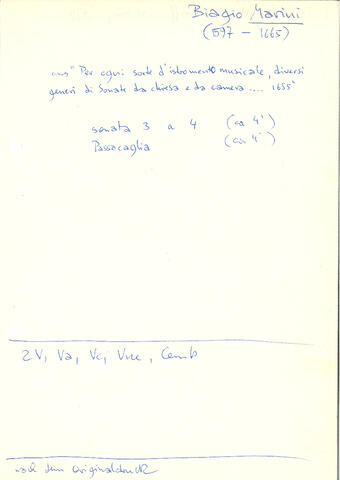 Biagio Marini
(1597 - 1665)
aus "Per ogni sorte d'istromento musicale, diversi
generi di Sonate da chiesa e da camera .... 1655"
sonata 3 a 4 (ca 4')
Passacaglia (ca 4')
2 V, Va, Vc, Vne, Cemb
nach dem Originaldruck